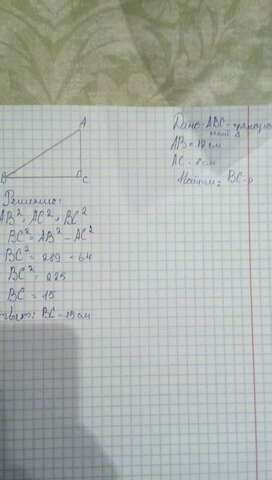 Дано: ABC - прямоуголь
ный Δ
AB = 17 см
AC = 8 см
Найти: BC - ?
A
B
C
Решение:
AB² = AC² + BC²
BC² = AB² - AC²
BC² = 289 - 64
BC² = 225
BC = 15
Ответ: BC - 15 см